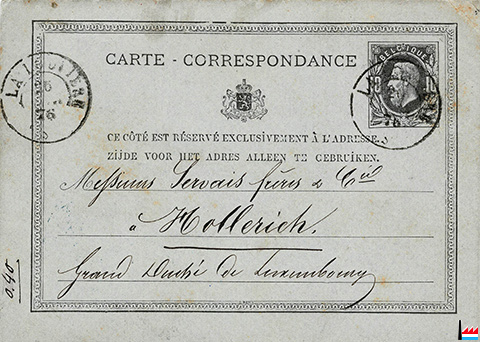 CARTE - CORRESPONDANCE
BELGIQUE
LA LOUVIERE
76
76
CE CÔTÉ EST RÉSERVÉ EXCLUSIVEMENT À L'ADRESSE.
ZIJDE VOOR HET ADRES ALLEEN TE GEBRUIKEN.
Messieurs Servais frères & Cie
à Hollerich.
Grand Duché de Luxembourg
0.40